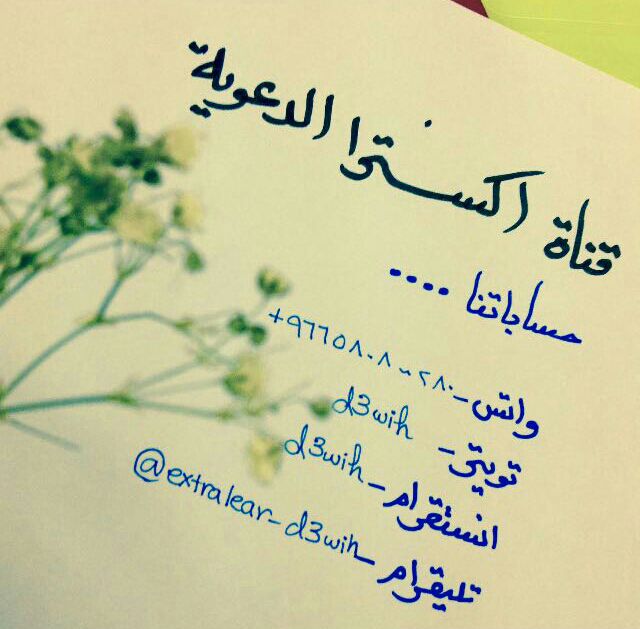 قناة اكسترا الدعوية
حساباتنا ....
واتس_ +٩٦٦٥٨٠٨٠٠٢٨٠
تويتر_ d3wih
انستقرام_ d3wih
تليقرام_ @extralear_d3wih